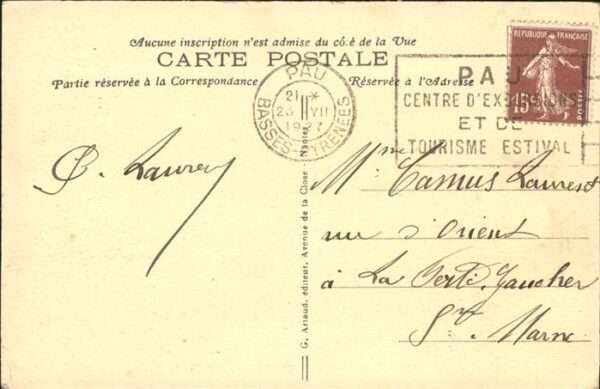 Aucune inscription n'est admise du côté de la Vue
CARTE POSTALE
Partie réservée à la Correspondance
Réservée à l'Adresse
PAU
21 *
23 VII
1927
BASSES-PYRENEES
REPUBLIQUE FRANÇAISE
15c
POSTES
PAU
CENTRE D'EXCURSIONS
ET DE
TOURISME ESTIVAL
Mme Camus Laurent
rue d'Orient
à La Ferté Gaucher
Sne Marne
G. Artaud, éditeur, Avenue de la Close - Nantes